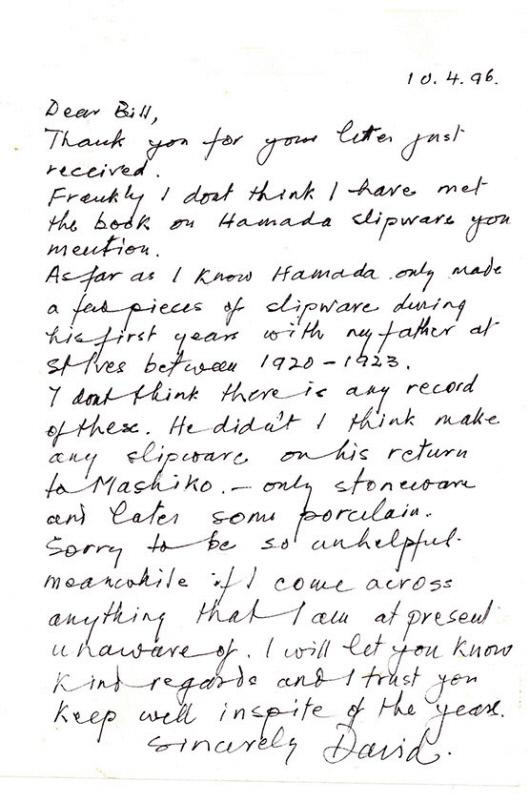 10.4.96.
Dear Bill,
Thank you for your letter just
received.
Frankly I dont think I have met
the book on Hamada slipware you
mention.
As far as I know Hamada only made
a few pieces of slipware during
his first years with my father at
St Ives between 1920 – 1923.
I dont think there is any record
of these. He didn't I think make
any slipware on his return
to Mashiko. – only stoneware
and later some porcelain.
Sorry to be so unhelpful.
meanwhile if I come across
anything that I am at present
unaware of. I will let you know
Kind regards and I trust you
keep well inspite of the years.
Sincerely David.